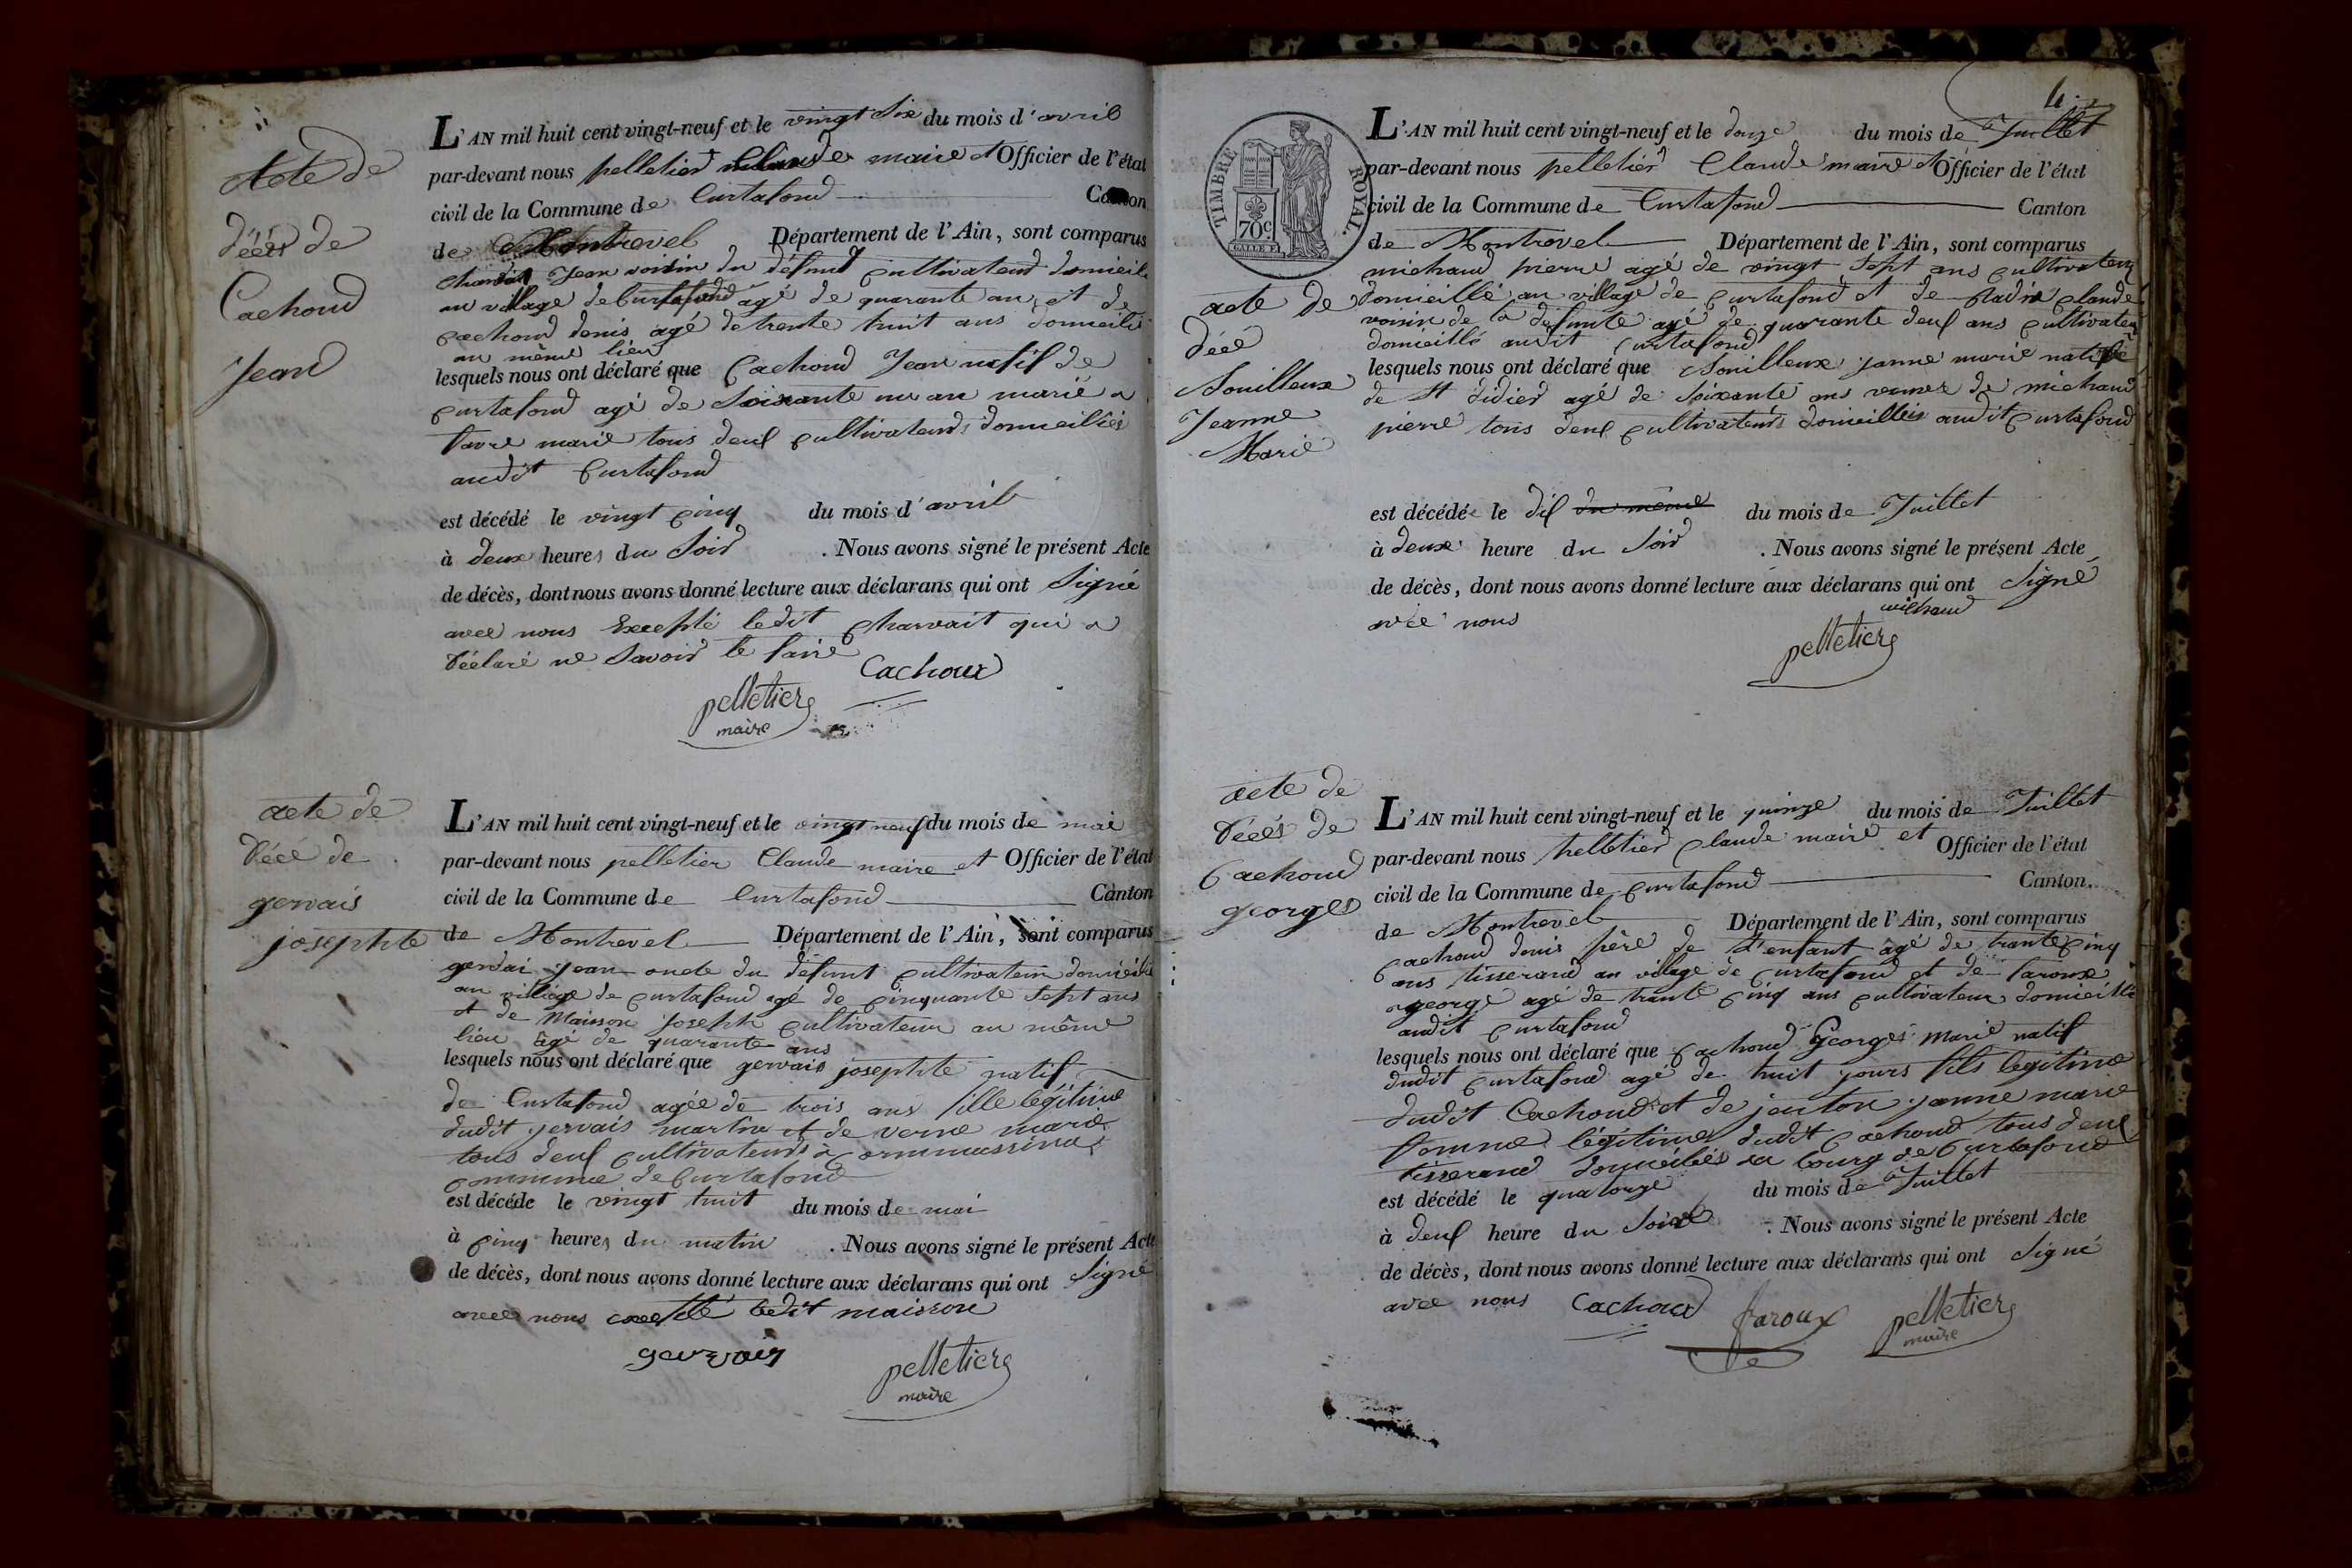 Acte de
décès de
Cachoud
Jean
L'AN mil huit cent vingt-neuf et le vingt six du mois d'avril
par-devant nous pelletier Claude maire et Officier de l'état
civil de la Commune de Curtafond Canton
de Montrevel Département de l'Ain, sont comparus
Jean voisin du défunt cultivateur domicilié
au village de Curtafond agé de quarante ans et de
cachoud denis agé de trente huit ans domicilié
au même lieu
lesquels nous ont déclaré que Cachoud Jean natif de
curtafond agé de Soixante un an marié a
favre marie tous deux cultivateurs domiciliés
audit Curtafond
est décédé le vingt cinq du mois d'avril
à deux heures du Soir . Nous avons signé le présent Acte
de décès, dont nous avons donné lecture aux déclarans qui ont Signé
avec nous Excepté ledit charvait qui a
déclaré ne Savoir le faire
Cachoud
pelletier
maire
acte de
décè de
gervais
josephte
L'AN mil huit cent vingt-neuf et le vingt neuf du mois de mai
par-devant nous pelletier Claude maire et Officier de l'état
civil de la Commune de Curtafond Canton
de Montrevel Département de l'Ain, sont comparus
gervai jean oncle du défunt cultivateur domicilié
au village de curtafond agé de cinquante sept ans
et de Maisson joseph cultivateur au même
lieu âgé de quarante ans
lesquels nous ont déclaré que gervais josephte natif
de Curtafond agée de trois ans fille légitime
dudit jervais martin et de verne marie
tous deux cultivateurs a
commune de Curtafond
est décéde le vingt huit du mois de mai
à cinq heures du matin . Nous avons signé le présent Acte
de décès, dont nous avons donné lecture aux déclarans qui ont Signé
avec nous excepté ledit maisson
gervais
pelletier
maire
4
TIMBRE ROYAL.
70c.
L'AN mil huit cent vingt-neuf et le douze du mois de Juillet
par-devant nous pelletier Claude maire et Officier de l'état
civil de la Commune de Curtafond Canton
de Montrevel Département de l'Ain, sont comparus
michaud pierre agé de vingt Sept ans cultivateur
acte de
décé
Souilleux
Jeanne
Marie
domicillé au village de Curtafond et de claude
voisin de la defunte agé de quarante deux ans cultivateur
domicillé audit Curtafond
lesquels nous ont déclaré que Souilleux janne marie native
de St didier agé de Soixante ans de michaud
pierre tous deux cultivateurs domicilliés audit Curtafond
est décédée le dix du même du mois de Juillet
à deux heure du Soir . Nous avons signé le présent Acte
de décès, dont nous avons donné lecture aux déclarans qui ont Signé
avec nous
michaud
pelletier
acte de
Décès de
Cachoud
georges
L'AN mil huit cent vingt-neuf et le quinze du mois de Juillet
par-devant nous pelletier claude maire et Officier de l'état
civil de la Commune de Curtafond Canton
de Montrevel Département de l'Ain, sont comparus
cachoud denis père de l'enfant âgé de trante cinq
ans tisserand au village de Curtafond et de faroux
george agé de trante cinq ans cultivateur domicillé
audit curtafond
lesquels nous ont déclaré que cachoud Georges marie natif
dudit Curtafond agé de huit jours fils legitime
dudit Cachoud et de janne marie
femme légitime dudit cachoud tous deux
tisserand domiciliés au bourg de Curtafond
est décédé le quatorze du mois de Juillet
à deux heure du Soir . Nous avons signé le présent Acte
de décès, dont nous avons donné lecture aux déclarans qui ont Signé
avec nous Cachoud faroux pelletier
maire